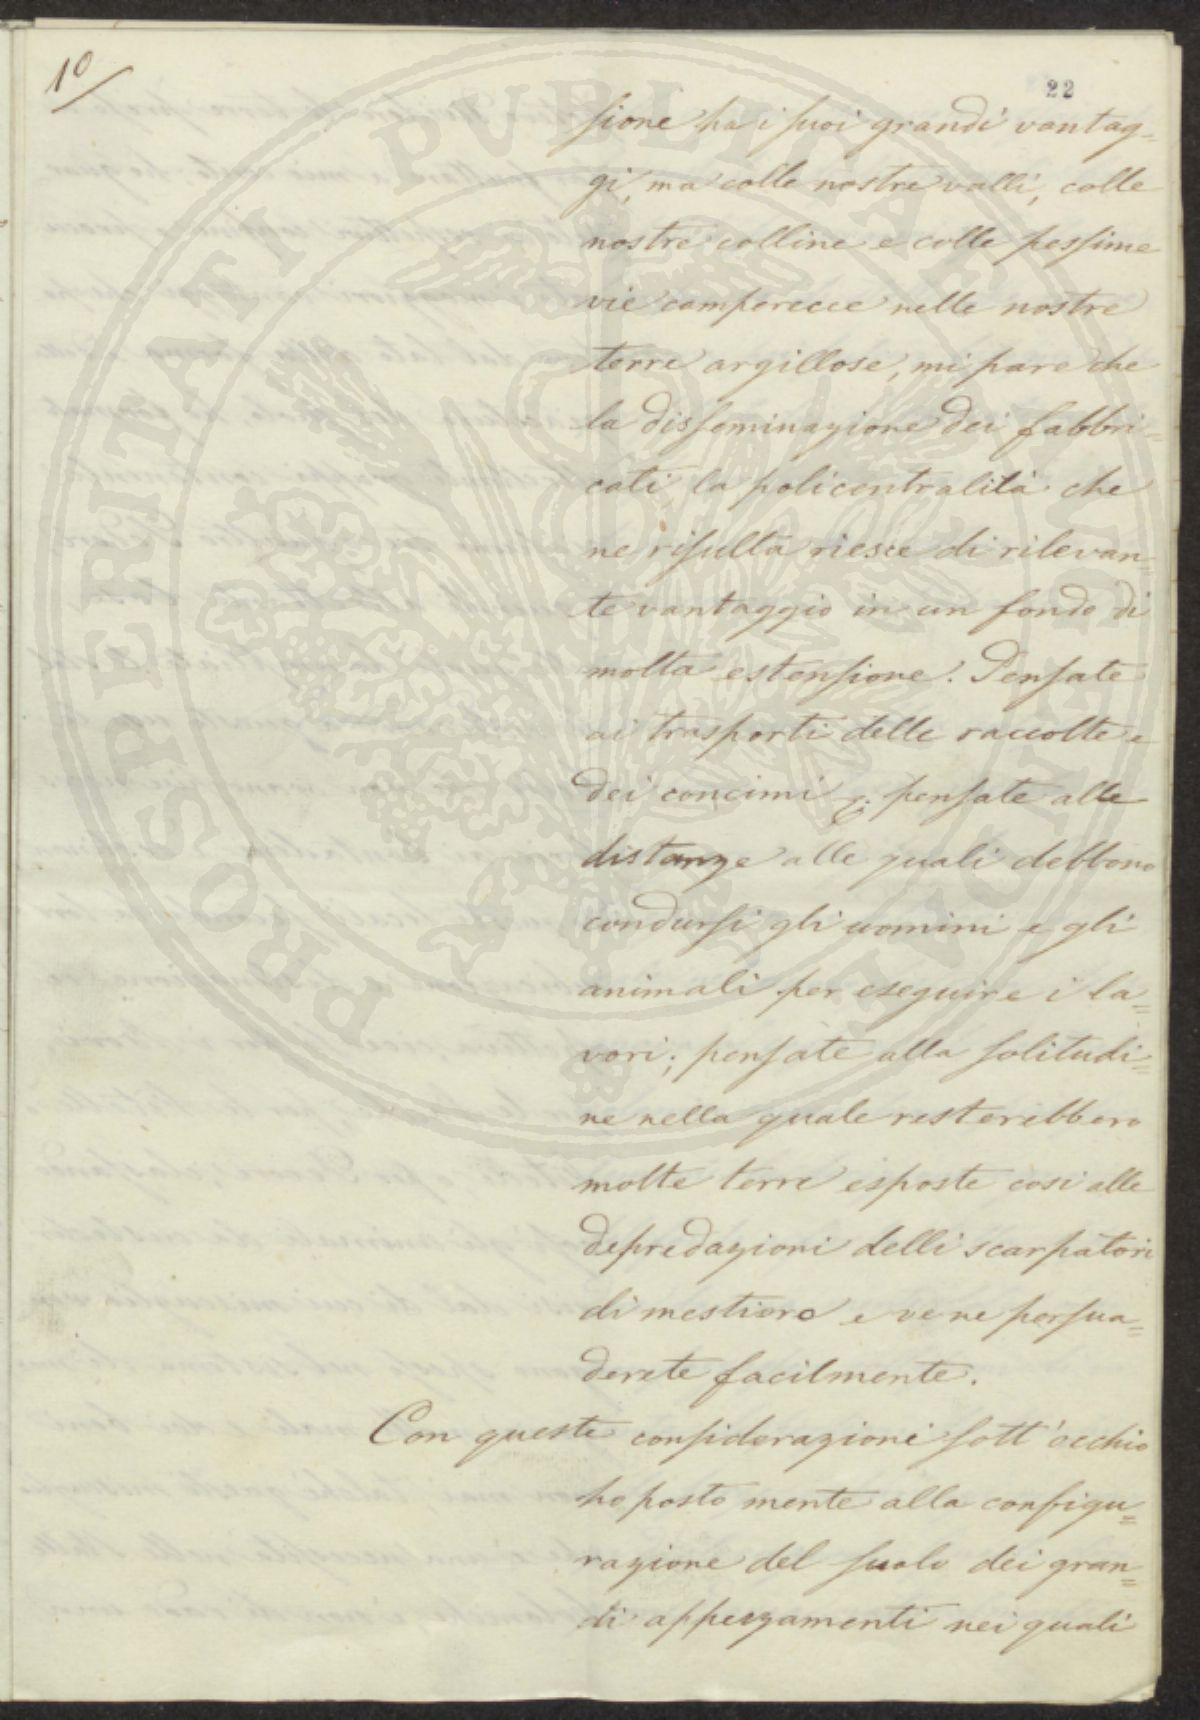 10
22
sione ha i suoi grandi vantag=
gi, ma colle nostre valli, colle
nostre colline e colle pessime
vie camperecce nelle nostre
terre argillose, mi pare che
la disseminazione dei fabbri=
cati, la policentralità che
ne risulta riesce di rilevan=
te vantaggio in un fondo di
molta estensione. Pensate
ai trasporti delle raccolte e
dei concimi &; pensate alle
distanze alle quali debbono
condursi gli uomini e gli
animali per eseguire i la=
vori; pensate alla solitudi=
ne nella quale resterebbero
molte terre esposte così alle
depredazioni delli scarpatori
di mestiere e ve ne persua=
derete facilmente.
Con queste considerazioni sott'occhio
ho posto mente alla configu=
razione del suolo dei gran=
di appezzamenti nei quali
PROSPERITATI PUBLICAE AUGENDAE